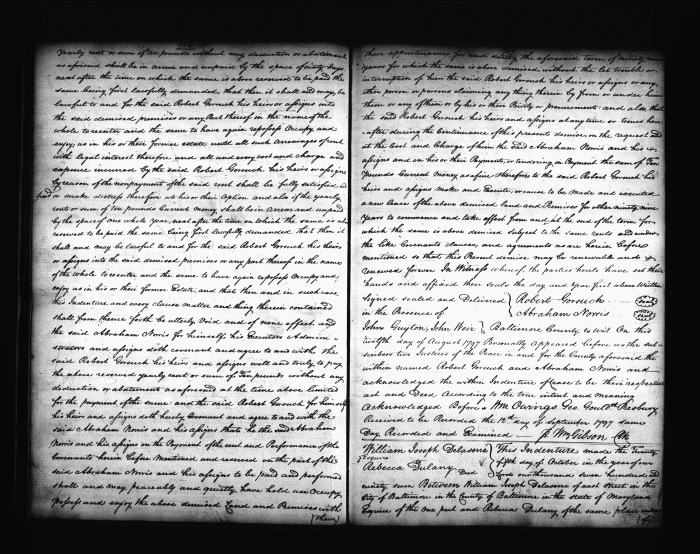 Yearly rent or sum of ten pounds without any deduction or abatement
as aforesaid shall be in arrear and unpaid by the space of sixty days
next after the time on which the same is above reserved to be paid the
same being first lawfully demanded, that then it shall and may be
lawful to and for the said Robert Gorsuch his heirs or assigns into
the said demised premises or any part thereof in the name of the
whole to reenter and the same to have again repossess Occupy and
enjoy, as in his or their former estate until all such arrearages of rent
with legal interest therefore and all and every cost and charge and
expence incurred by the said Robert Gorsuch his heirs or assigns
by reason of the nonpayment of the said rent shall be fully satisfied
or make distress therefore at his or their option and also if the yearly
rent or sum of ten pounds Current money shall be in arrear and unpaid
by the space of one whole Year next after the time on which the same is above
reserved to be paid the same being first lawfully demanded that then it
shall and may be lawful to and for the said Robert Gorsuch his heirs
or assigns into the said demised premises or any part thereof in the name
of the whole to reenter and the same to have again repossess Occupy and
enjoy as in his or their former Estate, and that then and in such case
this Indenture and every clause matter and thing therein contained
shall from thence forth be utterly Void and of none effect and
the said Abraham Norris for himself his Executors Admin =
istrators and assigns doth covenant and agree to and with the
said Robert Gorsuch his heirs and assigns well and truly to pay
the above reserved yearly rent or sum of Ten pounds without any
deduction or abatement as aforesaid at the time above limited
for the payment of the same and the said Robert Gorsuch for himself
his heirs and assigns doth hereby Covenant and agree to and with the
said Abraham Norris and his assigns that he the said Abraham
Norris and his assigns on the Payment of the rent and Performance of the
Covenants herein before Mentioned and reserved on the part of the
said Abraham Norris and his assigns to be paid and performed
shall and may peaceably and quietly have hold use Occupy
possess and enjoy the above demised Land and Premises with
(their)
their appurtenances for and during the aforesaid term of ninety nine
years for which the same is above demised without the let trouble or
interruption of him the said Robert Gorsuch his heirs or assigns or any
other person or persons claiming any thing therein by from or under him
them or any of them or by his or their Privity or procurement and also that
the said Robert Gorsuch his heirs and assigns at any time or times here
= after during the Continuance of this present demise, on the request and
at the Cost and Charge of him the said Abraham Norris and his
assigns and on his or their Payment, or tendering in Payment the sum of Ten
Pounds Current money as fine therefore to the said Robert Gorsuch his
heirs and assigns make and Execute, or cause to be Made and executed
a new lease of the above demised land and Premises for other ninety nine
Years to commence and take effect from and at the end of the term for
which the same is above demised subject to the same rents and under
the like Covenants clauses, and agreements as are herein before
mentioned so that this Present demise may be renewable and
renewed forever In Witness whereof the parties hereto have set their
hands and affixed their seals the day and Year first above Written
Signed sealed and Delivered } Robert Gorsuch (seal)
in the Presence of } Abraham Norris (seal)
John Guyton, John Weir } Baltimore County to wit On this
twelfth day of August 1797 Personally appeared before us the sub =
scribers two Justices of the Peace in and for the County aforesaid the
within named Robert Gorsuch and Abraham Norris and
acknowledged the within Indenture of Lease to be their respective
act and Deed According to the true intent and meaning
Acknowledged Before Wm Owings Geo Gouldsh Presbury
Received to be Recorded the 12th day of September 1797 same
Day Recorded and Examined Wm Gibson Clk
William Joseph Delasere } This Indenture made the Twenty
Rebecca Dulany Deed } fifth day of October in the year of our
Lord one thousand seven hundred and
ninety seven Between William Joseph Delasere of east street in the
City of Baltimore in the County of Baltimore in the state of Maryland
Esquire of the one part and Rebecca Dulany of the same place widow